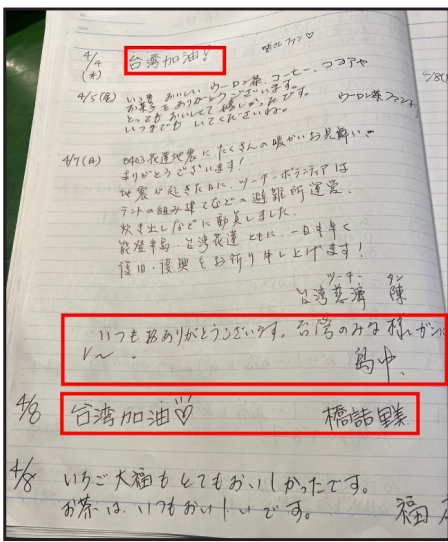 4/4
(木)
台湾加油!
4/5(金) いつも おいしい ウーロン茶、コーヒー、ココアや
お菓子をありがとうございます。
とっても おいしくて 嬉しかったです。
いつまでも いてくださいね。
ウーロン茶ファン
4/7(日) 0403花蓮地震に たくさんの暖かいお見舞い
ありがとうございます!
地震が起きた日に、ツーチーボランティアは
テントの組み建てなどの避難所運営、
炊き出しなどに動員しました。
能登半島、台湾花蓮 ともに、一日も早く
復旧・復興をお祈り申し上げます!
ツーチー タン
台湾慈濟 陳
いつもありがとうございます。台湾のみな様、ガンバ
レ~。
島中、
4/8 台湾加油♡ 橋詰里美
4/8 いちご大福もとてもおいしかったです。
お茶は、いつもおいしいです。 福